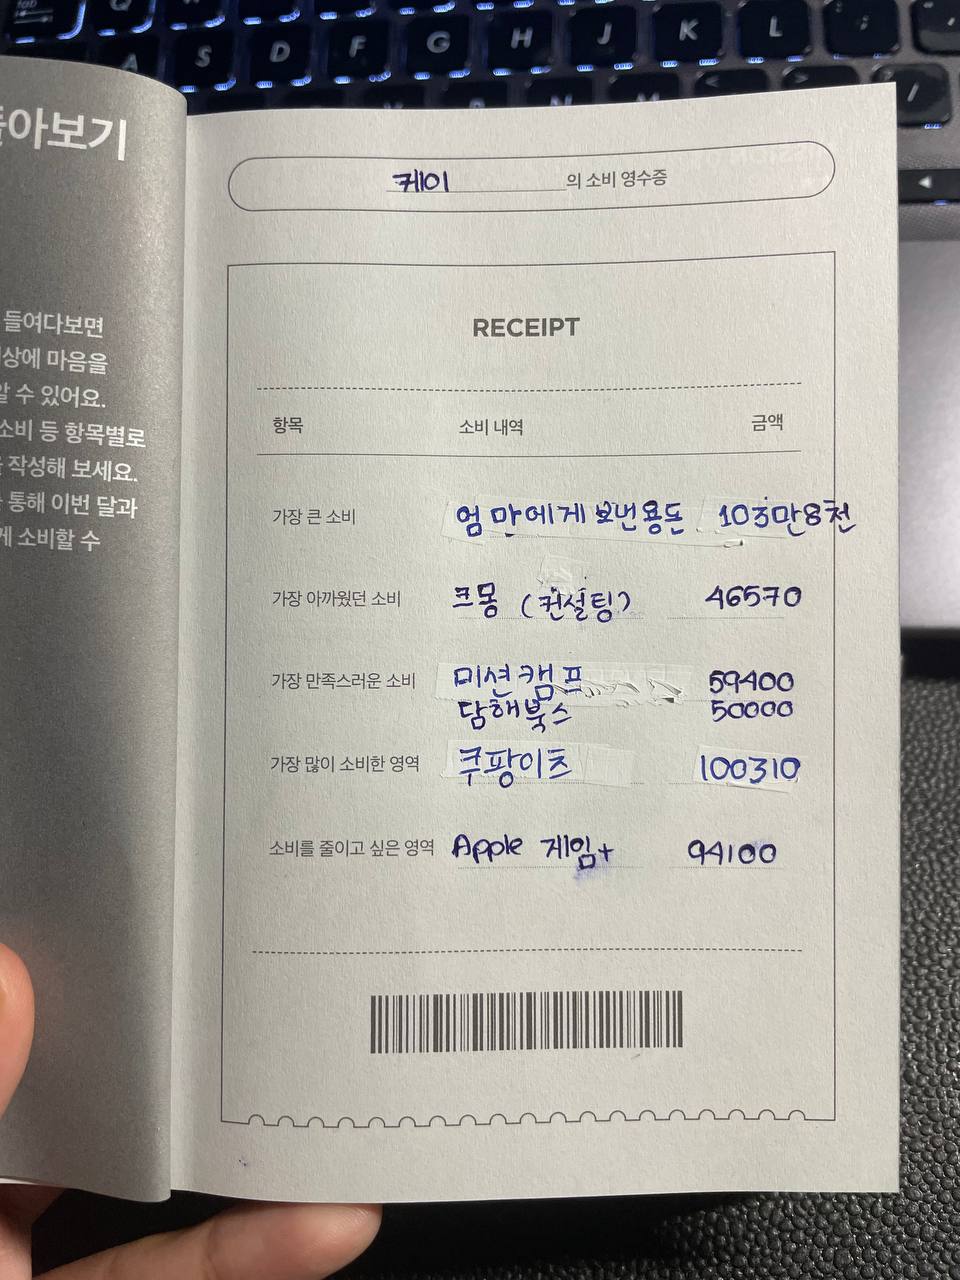 돌아보기
들여다보면
상에 마음을
알 수 있어요.
소비 등 항목별로
작성해 보세요.
통해 이번 달과
게 소비할 수
케이의 소비 영수증
RECEIPT
항목 소비 내역 금액
가장 큰 소비 엄마에게 보낸 용돈 103만8천
가장 아까웠던 소비 크몽 (컨설팅) 46570
가장 만족스러운 소비 미션캠프 59400
담해북스 50000
가장 많이 소비한 영역 쿠팡이츠 100310
소비를 줄이고 싶은 영역 Apple 게임+ 94100
A S D F G H J K L